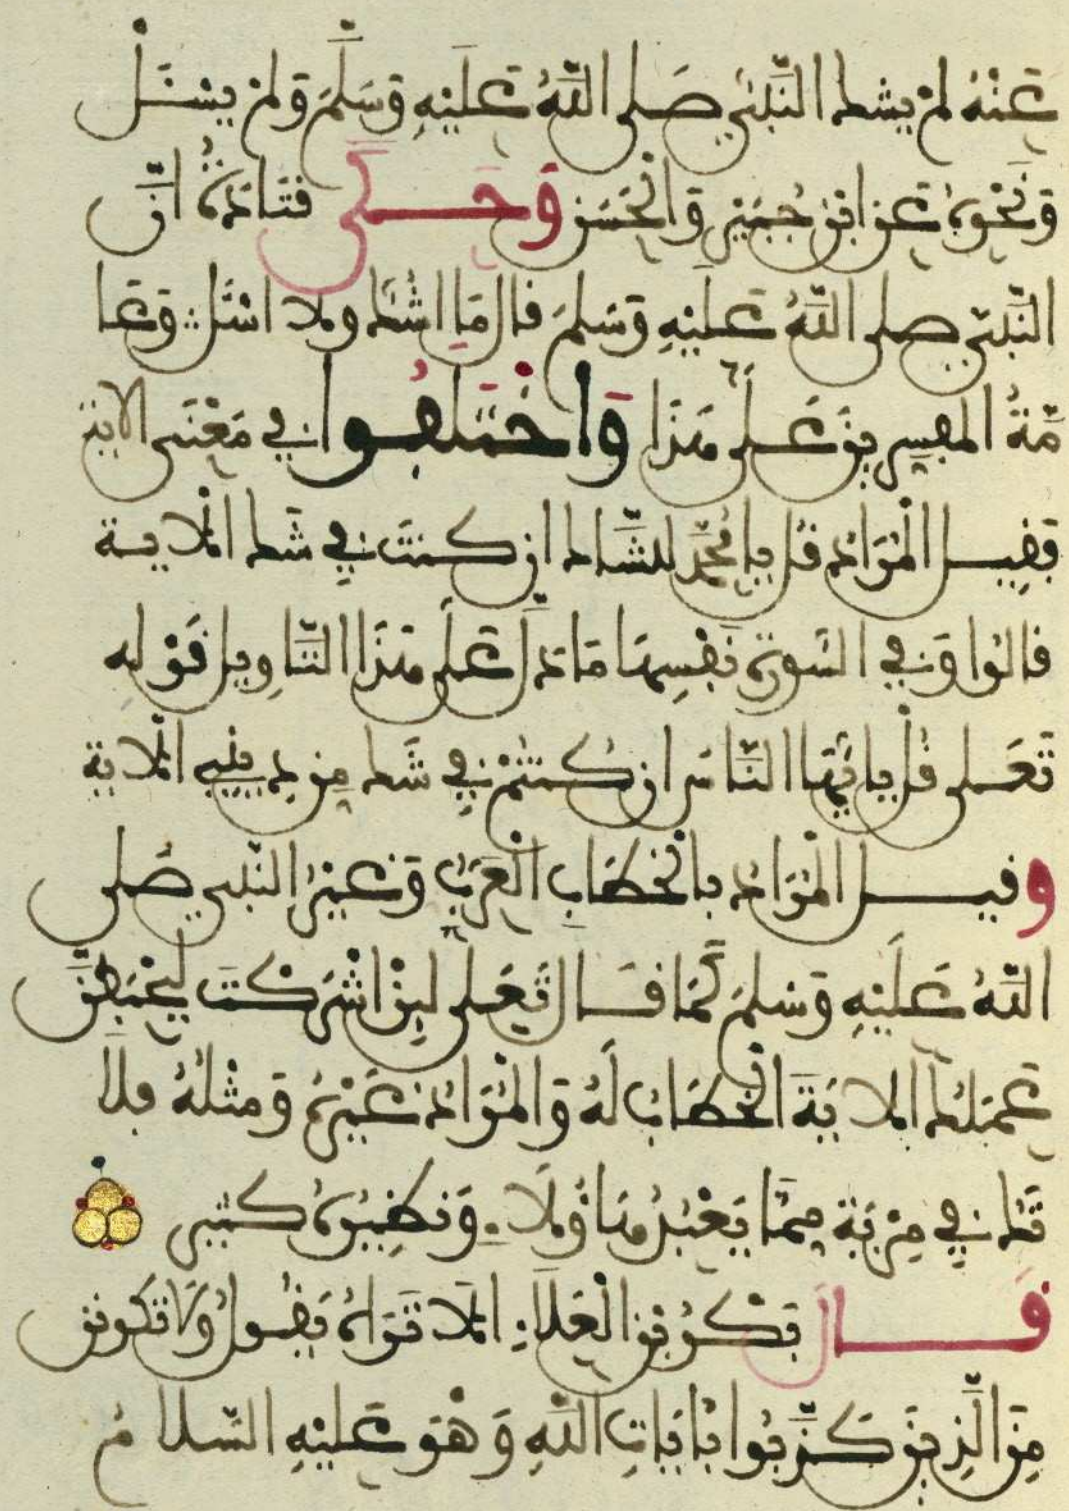 عَنْهُ لمْ يشك النَّبيّ صَلى اللهُ عَلَيْهِ وَسَلَّمَ وَلمْ يسْئَلْ
وَنَحْوهُ عن ابْن جُبَيْرٍ وَالحَسَنِ وَحَكى قتَادَةُ انَّ
النَّبيّ صلى اللهُ عَلَيْهِ وَسَلمَ قال مَا اشُكّ ولا اسْئَل وَعَا
مَّةُ المفسِرينَ عَلى هَذَا وَاخْتَلفُوا في مَعْنَى الايَة
فقِيل المُرَاد قل يا مُحَمَّد للشَّاك ان كنتَ في شَك الاية
قالوا وَفي السُّورَةِ نَفْسِهَا مَا دَلَّ عَلى هَذَا التَّاويل قَوْله
تَعَلى قُلْ يا أيُّها النَّاسُ ان كُنتُمْ في شَك مِن دِيني الاية
وقيل المُرَاد بالخطَابِ العَرَبُ وَغيْرُ النَّبي صَلى
اللهُ عَلَيْهِ وَسَلمَ كَمَا قَال تَعَلى لَئِنْ اشْرَكْتَ ليَحْبَطَنَّ
عَمَلُكَ الايَةَ الخطَابُ لَهُ وَالمُرَاد غَيْرُهُ وَمثْلُهُ فلا
تَك في مِرْيَة مِمَّا يَعْبُدُ هَاؤُلَاءِ وَنظِيرُهُ كثير
قَال بَكْرُ بن العَلَاءِ الا تَرَاهُ يَقُولُ وَلا تَكُونن
مِنَ الَّذِينَ كَذَّبُوا بِايَاتِ اللهِ وَهُوَ عَلَيْهِ السَّلامُ